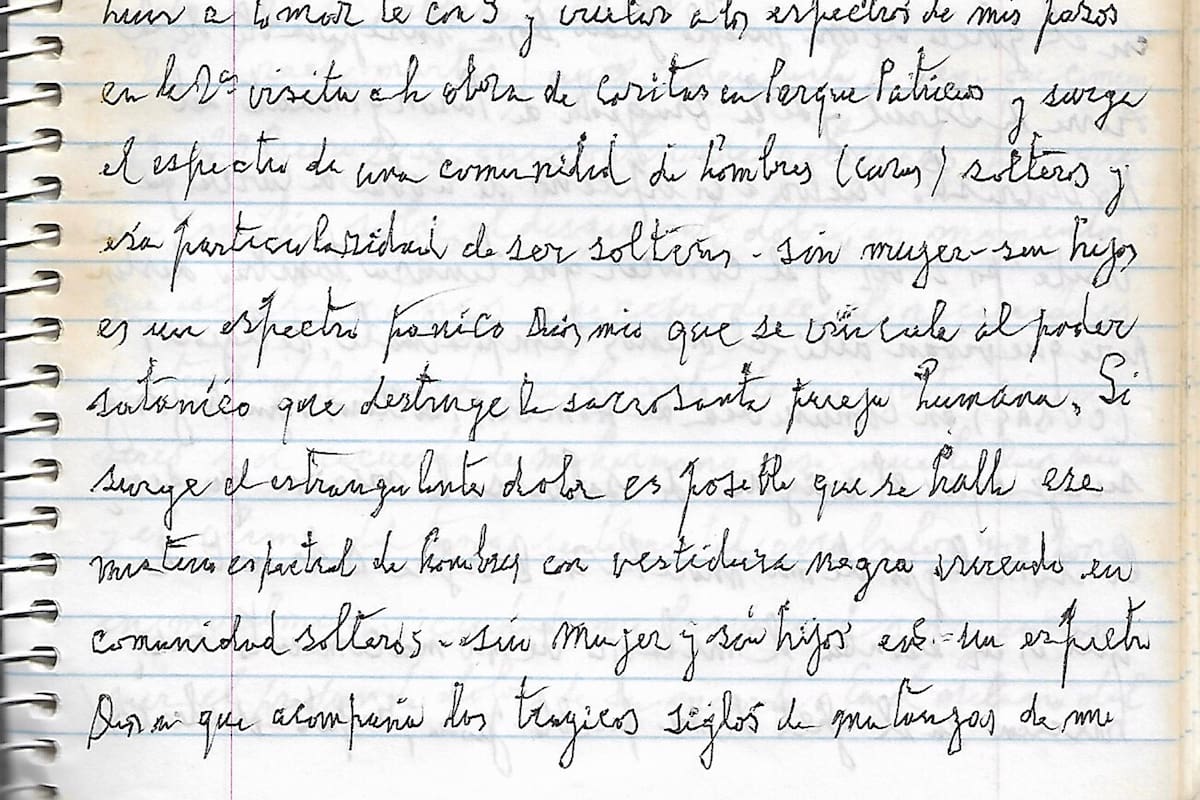 a tomar te con 3 y vuelvo a los espectros de mis pasos
en la 2ª visita a la obra de Caritas en Parque Patricios y surge
el espectro de una comunidad de hombres (curas) solteros y
esa particularidad de ser solteros - sin mujer - sin hijos
es un espectro panico Dios mio que se vincula al poder
satánico que destruye la sacrosanta pareja humana. Si
surge el estrangulante dolor es posible que se halle ese
misterio espectral de hombres con vestidura negra viviendo en
comunidad solteros - sin mujer y sin hijos es - un espectro
Dios mio que acompaña los tragicos siglos de matanzas de